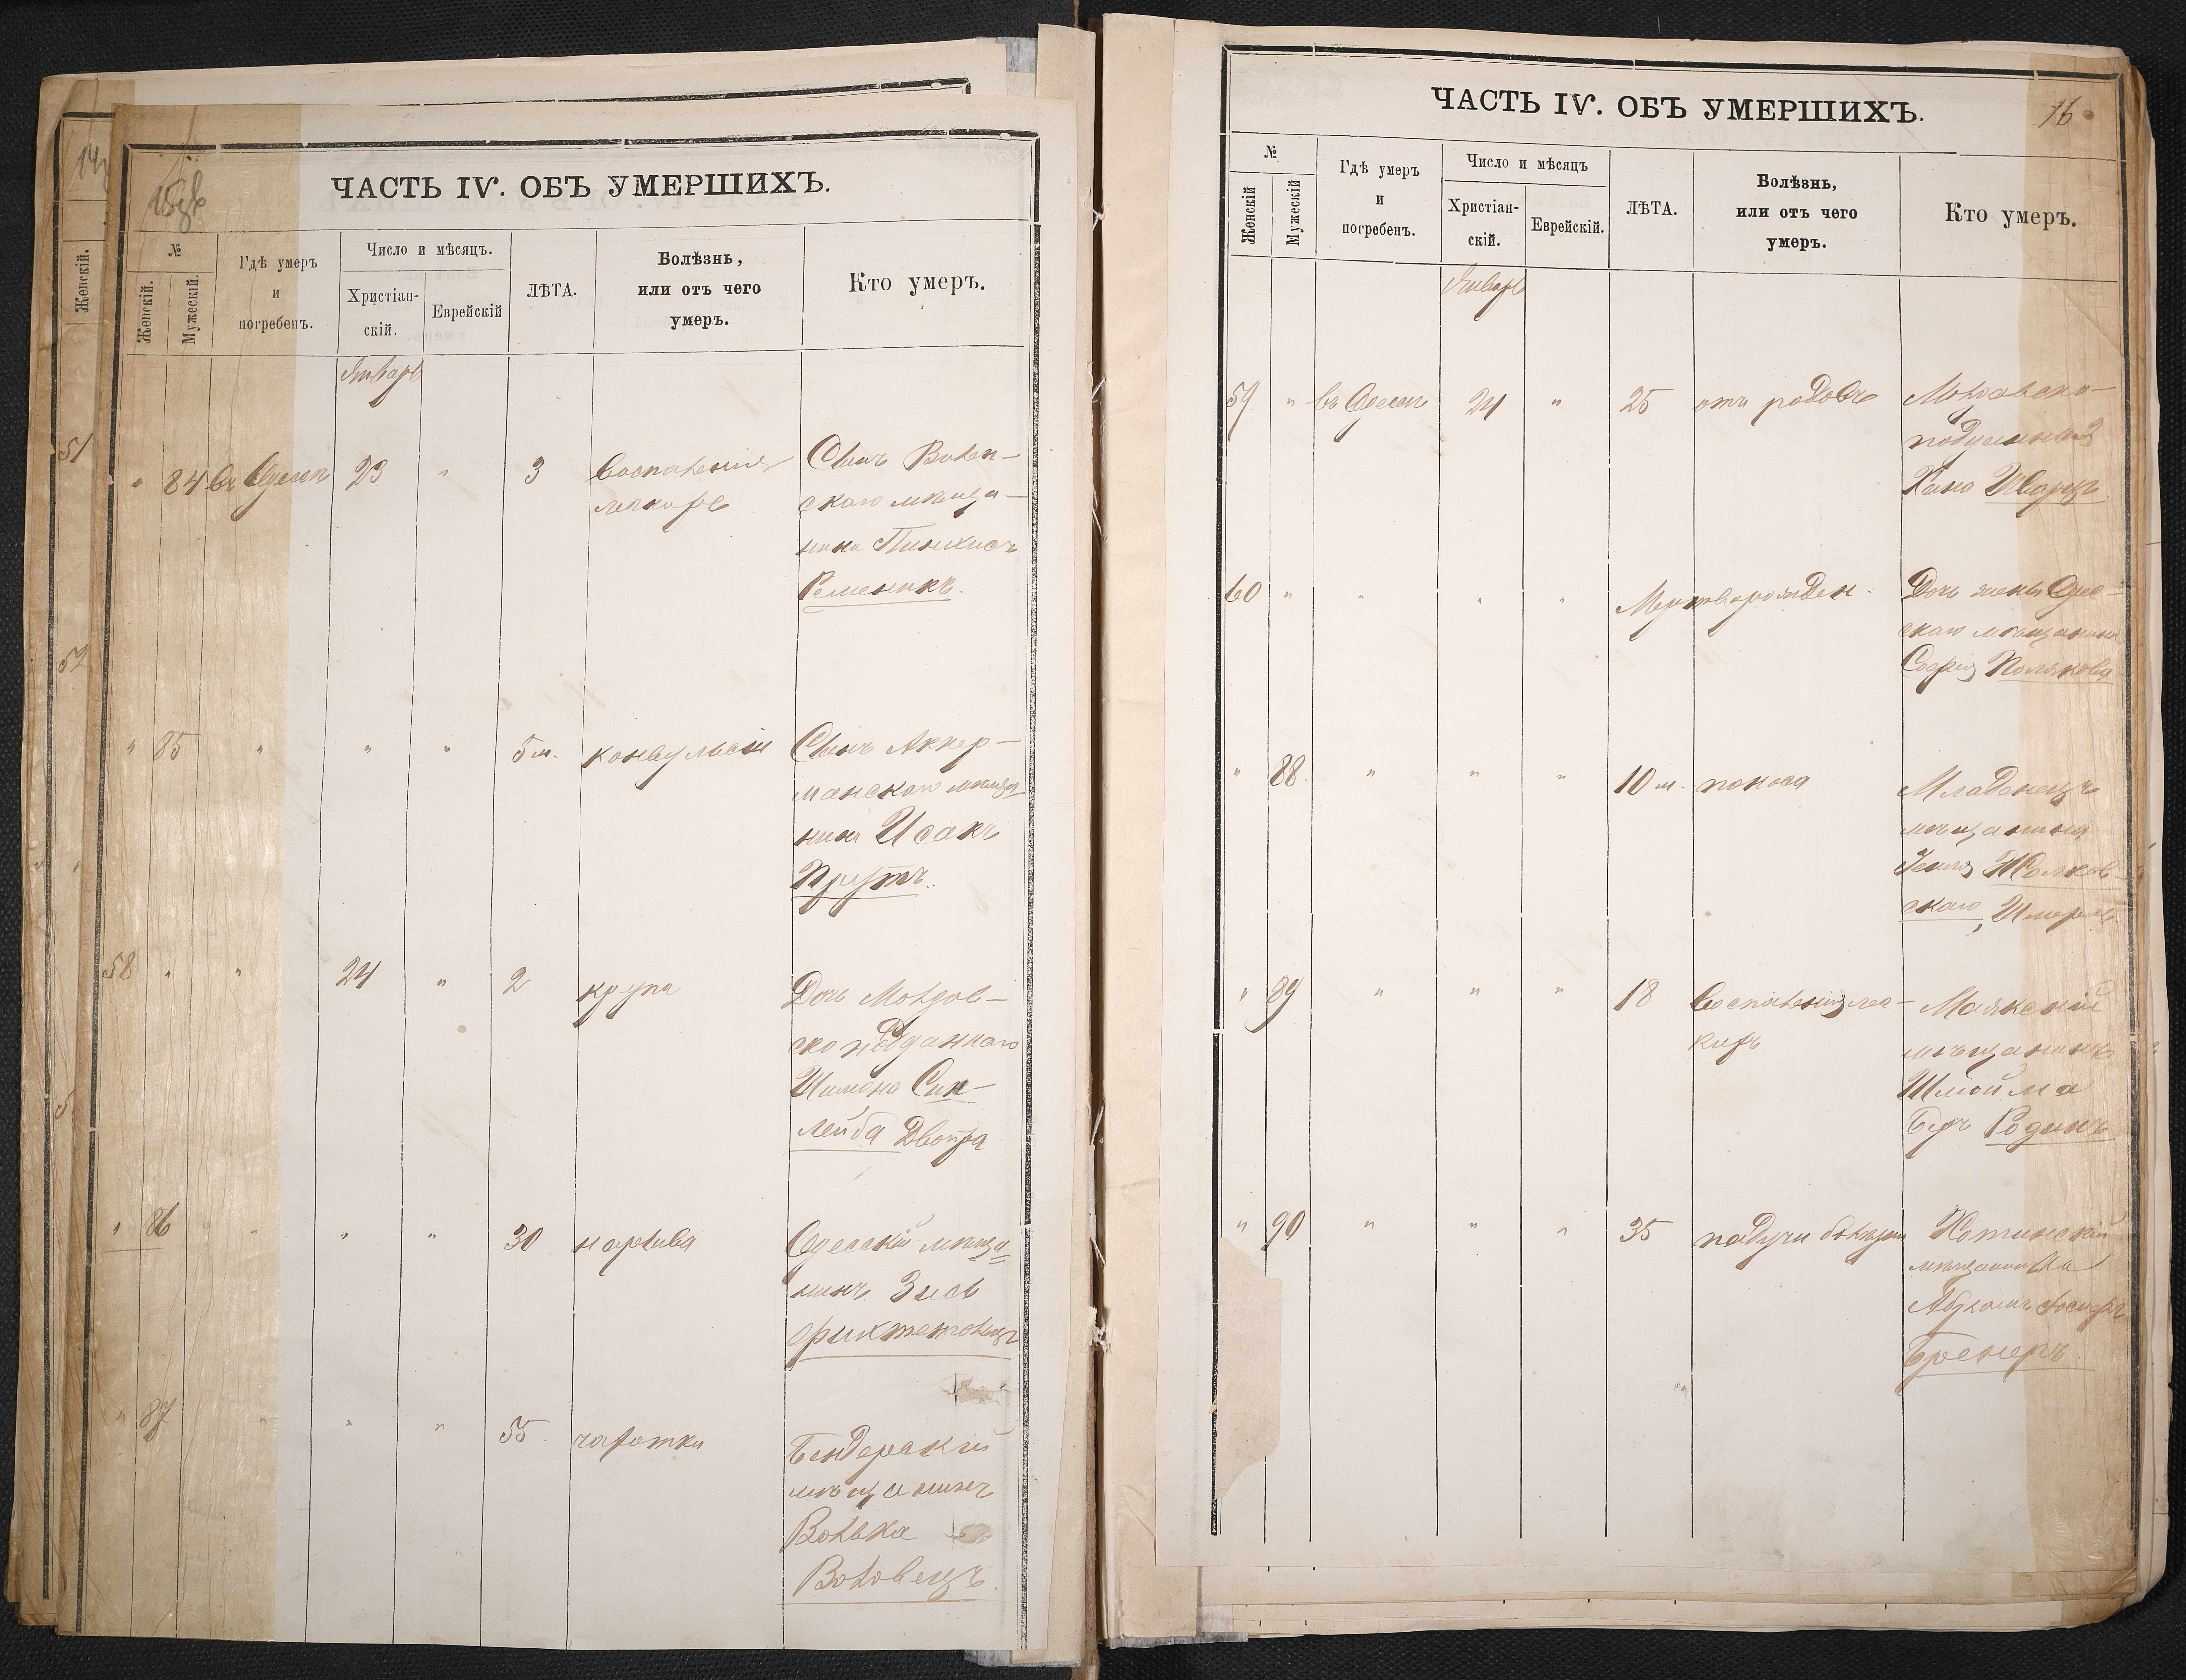 14
Женскій.
51
52
5
15об
ЧАСТЬ IV. ОБЪ УМЕРШИХЪ.
№
Женскій.
Мужескій.
Гдѣ умеръ
и
погребенъ.
Число и мѣсяцъ.
Христіан-
скій.
Еврейскій
ЛѢТА.
Болѣзнь,
или отъ чего
умеръ.
Кто умеръ.
Январь
" 84 въ Одессѣ 23 " 3 Воспаленія
легкихъ
Сынъ Волын-
скаго мѣща-
нина Пинхасъ
Ременикъ.
" 85 " " " 5 м. конвульсіи
Сынъ Аккер-
манскаго мѣща-
нина Исакъ
Прутъ.
58 " " 24 " 2 крупа
Дочь Молдав-
ско подданнаго
Шимона Сик-
лейба Двойра
" 86 " " " 30 нарыва
Одесскій мѣща-
нинъ Зись
" 87 " " " 55 чахотки
Бендерскій
мѣщанинъ
Волька
Воловецъ.
16
ЧАСТЬ IV. ОБЪ УМЕРШИХЪ.
№
Женскій
Мужескій
Гдѣ умеръ
и
погребенъ.
Число и мѣсяцъ
Христіан-
скій.
Еврейскій.
ЛѢТА.
Болѣзнь,
или отъ чего
умеръ.
Кто умеръ.
Январь
59 " въ Одессѣ 24 " 25 отъ родовъ
Молдавско-
подданная
Хана Шварцъ
60 " " " " Мертворожден.
Дочь жены Одес-
скаго мѣщанина
Софія Полякова
" 88. " " " 10 м. поноса
Младенецъ
мѣщанина
Жолков-
скаго, Шмерль
" 89 " " " 18 Воспаленія лег-
кихъ
Маякскій
мѣщанинъ
Шлойма
Беръ Родинъ
" 90 " " " 35 падучи болѣзни
Хотинскій
мѣщанинъ
Абрамъ
Бренеръ.